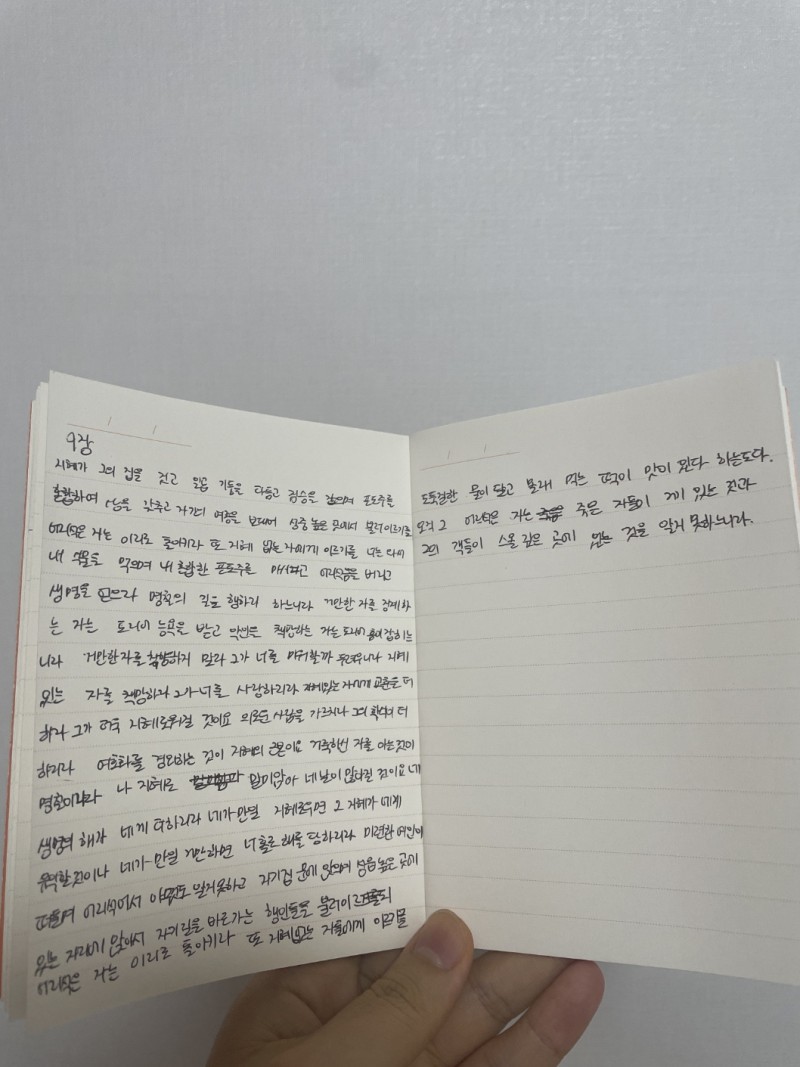 9장
지혜가 그의 집을 짓고 일곱 기둥을 다듬고 짐승을 잡으며 포도주를
혼합하여 상을 갖추고 자기의 여종을 보내어 성중 높은 곳에서 불러 이르기를
어리석은 자는 이리로 돌아키라 또 지혜 없는 자에게 이르기를 너는 와서
내 식물을 먹으며 내 혼합한 포도주를 마시고 어리석음을 버리고
생명을 얻으라 명철의 길을 행하라 하느니라 거만한 자를 징계하
는 자는 도리어 능욕을 받고 악인을 책망하는 자는 도리어 흠이 잡히는
니라 거만한 자를 책망하지 말라 그가 너를 미워할까 두려우니라 지혜
있는 자를 책망하라 그가 너를 사랑하리라 지혜있는 자에게 교훈을 더
하라 그가 더욱 지혜로워질 것이요 의로운 사람을 가르치라 그의 학식이 더
하리라 여호와를 경외하는 것이 지혜의 근본이요 거룩하신 자를 아는 것이
명철이니라 나 지혜로 말미암아 네 날이 많아질 것이요 네
생명의 해가 네게 더하리라 네가 만일 지혜로우면 그 지혜가 네게
유익할 것이나 네가 만일 거만하면 너 홀로 해를 당하리라 미련한 여인이
떠들며 어리석어서 아무것도 알지 못하고 자기 집 문에 앉으며 성읍 높은 곳에
있는 자리에 앉아서 자기 길을 바로 가는 행인들을 불러 이르되
어리석은 자는 이리로 돌아키라 또 지혜 없는 자들에게 이르기를
도둑질한 물이 달고 몰래 먹는 떡이 맛이 있다 하는도다.
오직 그 어리석은 자는 죽은 자들이 거기 있는 것과
그의 객들이 스올 깊은 곳에 있는 것을 알지 못하느니라.